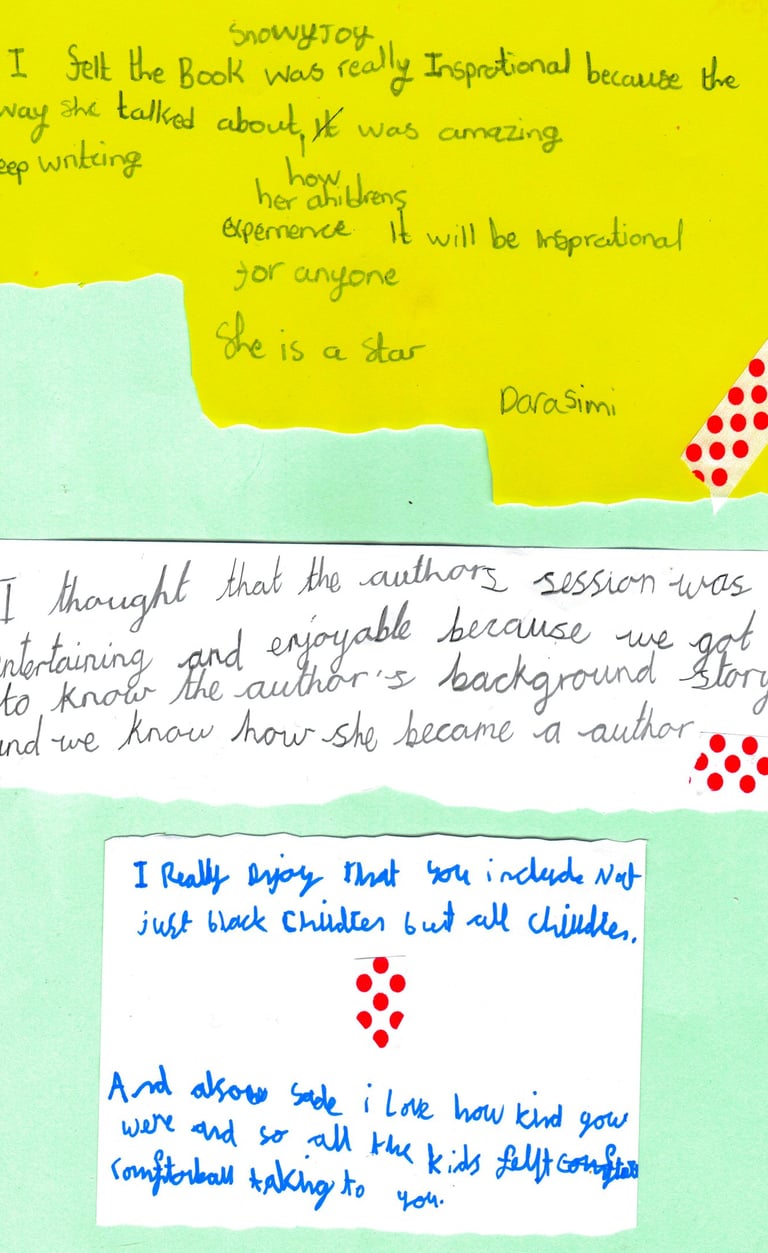 SnowyJoy
I felt the Book was really Insprotional because the
way she talked about, It was amazing
eep writcing
how
her childrens
experience It will be Insprational
for anyone
She is a star
Darasimi
I thought that the authors session was
ntertaining and enjoyable because we got
to know the author's background story
and we know how she became a author
I Really Enjoy that you include Not
just black Childten but all childdes.
And also Sade i love how kind yow
were and so all the kids fellt
comftorball talking to you.